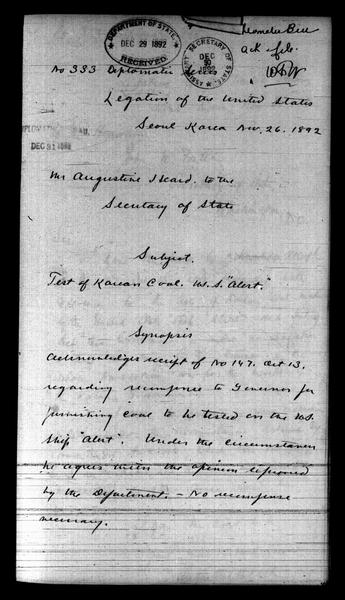 DEPARTMENT OF STATE,
DEC 29 1892
RECEIVED
SECRETARY OF STATE
ASSISTANT
DEC
1892
ack
No 333 Diplomatic Series
Legation of the United States
Seoul Korea Nov. 26. 1892
Mr Augustine Heard. to the
Secretary of State
Subject.
Test of Korean Coal. U.S.S. "Alert."
Synopsis
Acknowledges receipt of No 147. Oct 13.
regarding recompense to Governor for
furnishing coal to be tested on the U.S.
Ship "Alert". Under the circumstances
he agrees with the opinion expressed
by the Department. - No recompense
necessary.